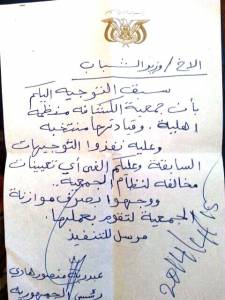 الاخ / وزير الشباب
سبق التوجيه اليكم
بأن جمعية الكشافة منظمة
اهلية . وقيادتها منتخبة
وعليه نفذوا التوجيهات
السابقة وعليكم الغى أي تعيينات
مخالفة لنظام الجمعية ..
ووجهوا بصرف موازنة
الجمعية لتقوم بعملها.
مرسل للتنفيذ
عبدربه منصور هادي
رئيس الجمهورية
2014/4/15